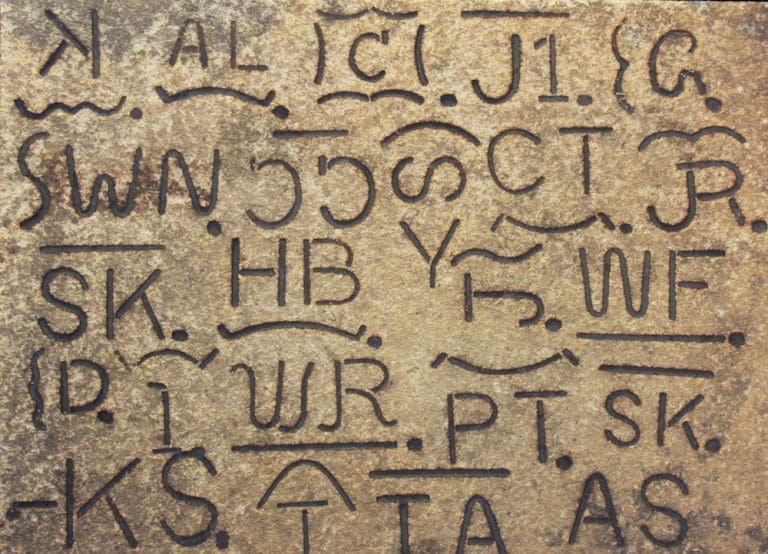 K AL C J1. G.
WN. ƆƆ S CT. JR.
SK. HB. Y WF.
D. T. WR. PT. SK.
KS. T TA AS